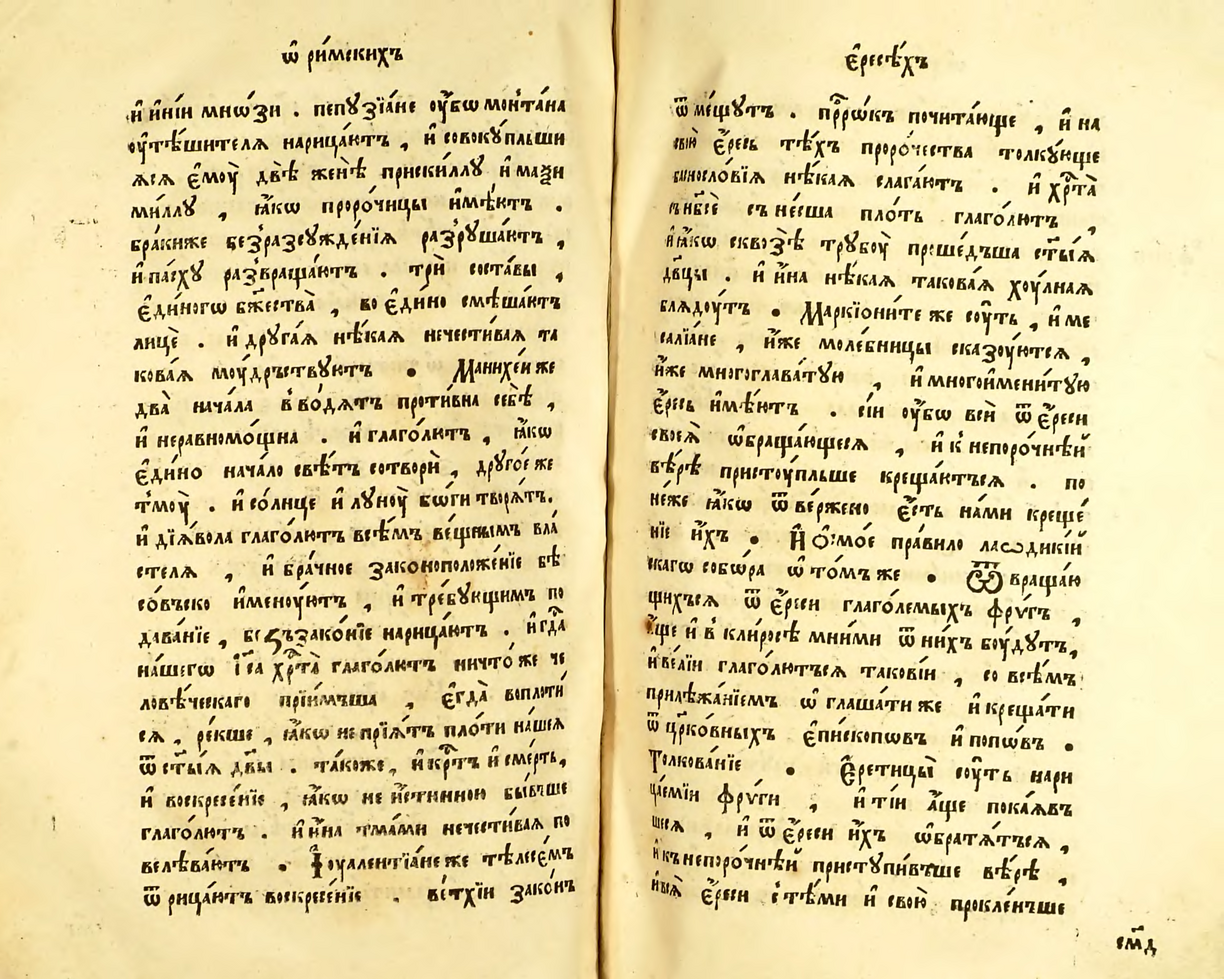 ѡ҆ ри́мскихъ
и҆ и҆ні́и мнѡ́зи . пепꙋзїа́не оу҆́бѡ монта́на
оу҆тѣ́шителѧ нарица́ютъ , и҆ совокꙋ́пльши
ѧсѧ є҆моу̀ двѣ̀ женѣ̀ прискиллꙋ и҆ маѯи
миллꙋ , ꙗ҆́кѡ проро́чицы и҆мѣ́ютъ .
бра́киже безразсꙋжде́нїѧ разрꙋша́ютъ ,
и҆ па́схꙋ развраща́ютъ . трѝ соста́вы ,
є҆ди́ногѡ бж҃ества̀ , во є҆ди́но смѣша́ютъ
лицѐ . и҆ дрꙋга́ѧ нѣ́каѧ нечести́ваѧ та
кова́ѧ моу́дръствꙋютъ . Манихе́и же
два̀ нача́ла вво́дѧтъ проти́вна себѣ̀ ,
и҆ неравномо́щна . и҆ глаго́лютъ , ꙗ҆́кѡ
є҆ди́но нача́ло свѣ́тъ сотворѝ , дрꙋго́е же
тмоу̀ . и҆ со́лнце и҆ лꙋноу̀ бѡ́ги творѧ́тъ .
и҆ дїѧ́вола глаго́лютъ всѣ́мъ ве́щнымъ вла
стелѧ , и҆ бра́чное законоположе́нїе бѣ
со́въско и҆меноу́ютъ , и҆ тре́бꙋющимъ по
дава́нїе , беззъзако́нїе нарица́ютъ . и҆ гдⷭ҇а
на́шегѡ і҆с҃а хрⷭ҇та̀ глаго́лютъ ничто́же че
ловѣ́ческаго прїи́мъша , є҆гда̀ воплоти́
сѧ , ре́кше , ꙗ҆́кѡ не прїѧ́тъ пло́ти на́шеѧ
ѿ ст҃ы́ѧ дв҃ы . та́коже , и҆ крⷭ҇тъ и҆ сме́рть ,
и҆ воскресе́нїе , ꙗ҆́кѡ не и҆́стинною бы́вше
глаго́лютъ . и҆ и҆́на тма́ми нечести́ваѧ по
велѣва́ютъ . І҆оуаленті́ане же тѣлесе́мъ
ѿрица́ютъ воскресе́нїе . ве́тхїи зако́нъ
є҆ресѣ́хъ
ѿме́щутъ . прⷪ҇рѡ́къ почита́юще , и҆ на
свою̀ є҆́ресь тѣ́хъ проро́чества толкꙋ́юще
винословїѧ нѣ́каѧ слага́ютъ . и҆ хрⷭ҇та̀
съ нб҃сѐ съне́сша пло́ть глаго́лютъ ,
и҆ ꙗ҆́кѡ сквозѣ̀ трꙋбоу̀ прше́дъша ст҃ы́ѧ
дв҃цы . и҆ и҆́на нѣ́каѧ такова́ѧ хоу́лнаѧ
блѧдоу́тъ . Маркїони́те же соу́ть , и҆ ме
салїа́не , и҆́же моле́бницы сказоу́ютсѧ ,
и҆́же многоглава́тꙋю , и҆ многоиме́нитꙋю
є҆́ресь и҆мѣ́ютъ . сі́и оу҆́бѡ всѝ ѿ є҆́реси
своеѧ̀ ѡ҆браща́ющесѧ , и҆ к непоро́чнѣй
вѣ́рѣ пристоу́пльше креща́ютъсѧ . по
не́же ꙗ҆́кѡ ѿве́ржено є҆́сть на́ми креще́
нїе и҆́хъ . И҆ о҆смо́е пра́вило лаѡдикі́й
скагѡ собѡ́ра ѡ҆ то́мъ же . Ѿвраща́ю
щихъсѧ ѿ є҆́реси глаго́лемыхъ фрѵ́гъ ,
а҆́ще и҆ в кли́росѣ мни́ми ѿ ни́хъ боу́дутъ ,
и҆ ве́лїи глаго́лютъсѧ такові́и , со всѣ́мъ
прилѣжа́нїемъ ѡ҆глаша́ти же и҆ креща́ти
ѿ цр҃ко́вныхъ є҆пи́скопѡвъ и҆ попѡ́въ .
Толкова́нїе . Є҆ретицы̀ соу́ть нари
ца́емїи фрѵ́ги , и҆ ті́и а҆́ще пока́ѧвъ
шесѧ , и҆ ѿ є҆́реси и҆́хъ ѡ҆братѧ́тъсѧ ,
и҆ къ непоро́чнѣй пристꙋпи́въше вѣ́рѣ ,
и҆ всѧ̀ є҆́реси с тѣ́ми и҆ свою̀ прокле́нъше
смⷣ